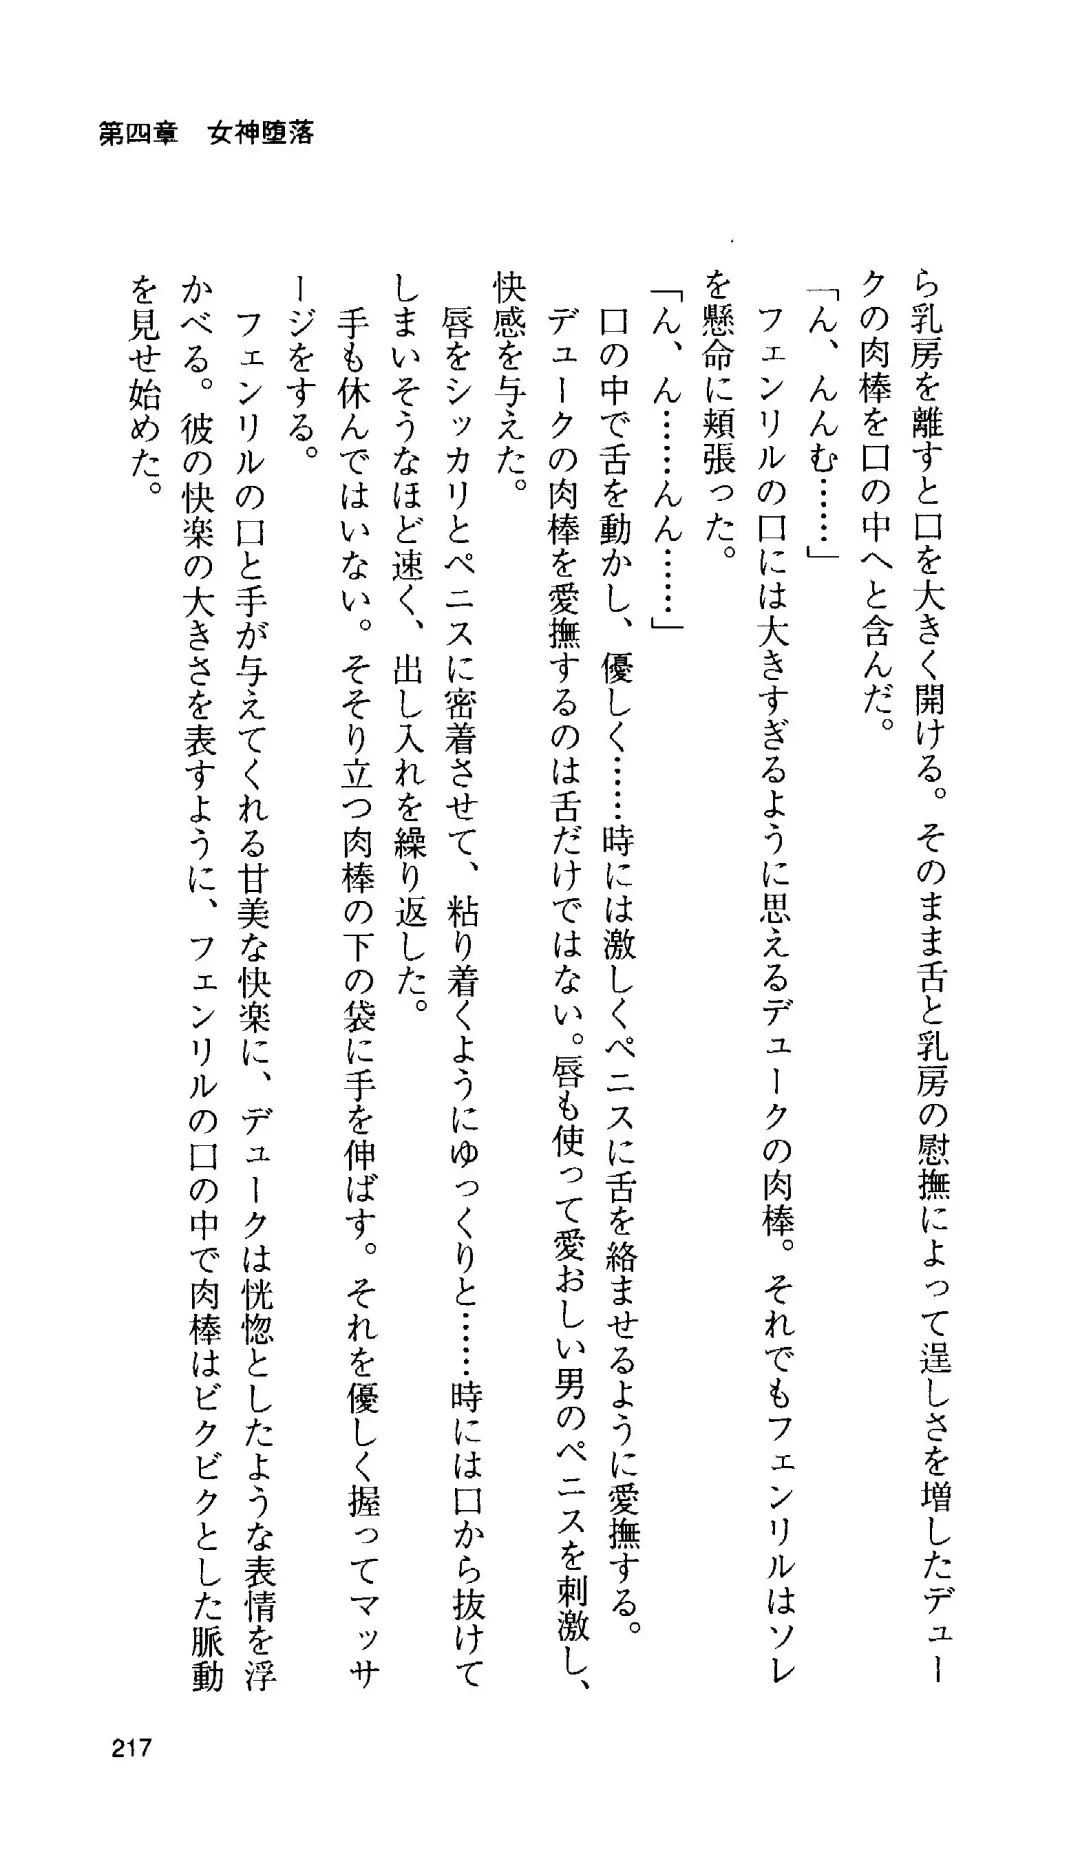 第四章　女神堕落
ら乳房を離すと口を大きく開ける。そのまま舌と乳房の慰撫によって逞しさを増したデュー
クの肉棒を口の中へと含んだ。
「ん、んんむ……」
フェンリルの口には大きすぎるように思えるデュークの肉棒。それでもフェンリルはソレ
を懸命に頬張った。
「ん、ん……んん……」
口の中で舌を動かし、優しく……時には激しくペニスに舌を絡ませるように愛撫する。
デュークの肉棒を愛撫するのは舌だけではない。唇も使って愛おしい男のペニスを刺激し、
快感を与えた。
唇をシッカリとペニスに密着させて、粘り着くようにゆっくりと……時には口から抜けて
しまいそうなほど速く、出し入れを繰り返した。
手も休んではいない。そそり立つ肉棒の下の袋に手を伸ばす。それを優しく握ってマッサ
ージをする。
フェンリルの口と手が与えてくれる甘美な快楽に、デュークは恍惚としたような表情を浮
かべる。彼の快楽の大きさを表すように、フェンリルの口の中で肉棒はビクビクとした脈動
を見せ始めた。
217